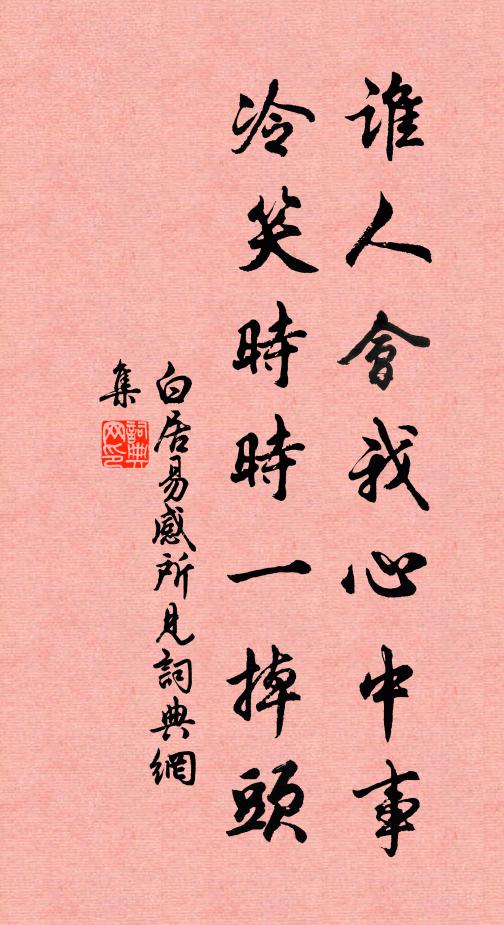 誰人會我心中事
冷笑時時一掉頭
白居易感所見詞典網
集
詞典
网印